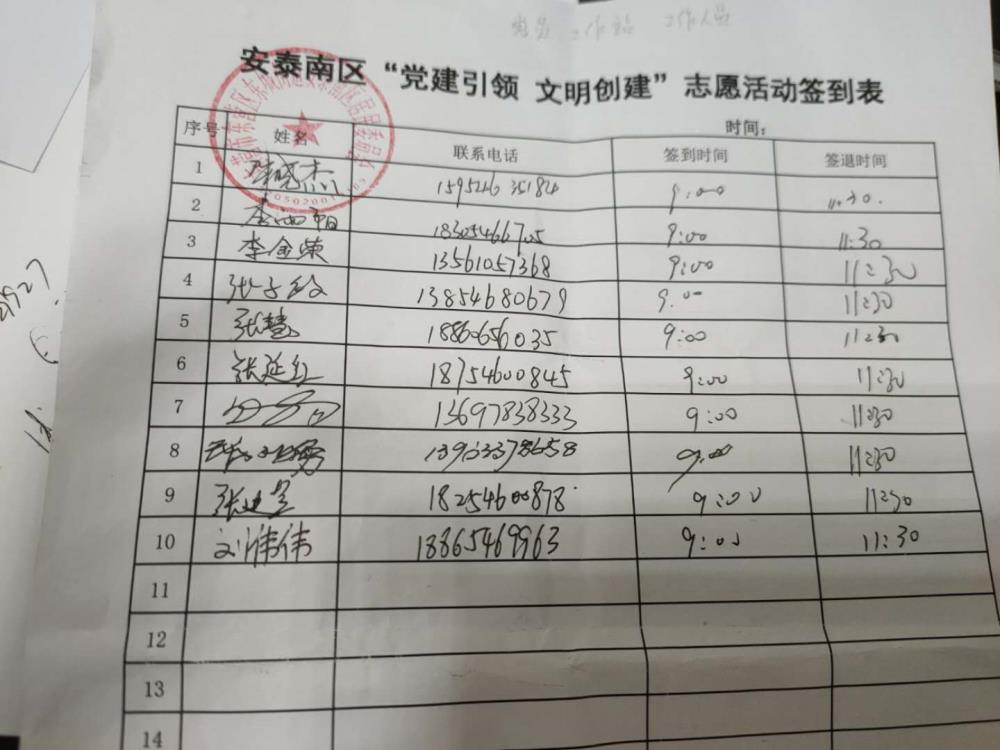 党员 工作站 工作人员
安泰南区“党建引领 文明创建”志愿活动签到表
时间：
序号 姓名 联系电话 签到时间 签退时间
1 9:00 11:30.
2 18305466705 9:00 11:30
3 李金荣 13561057368 9:00 11:30
4 13854680679 9:00 11:30
5 张慧 18860656035 9:00 11:30
6 张延红 18754600845 9:00 11:30
7 13697838333 9:00 11:30
8 9:00 11:30
9 张建星 18254600878 9:00 11:30
10 刘伟伟 18865469963 9:00 11:30
11
12
13
14